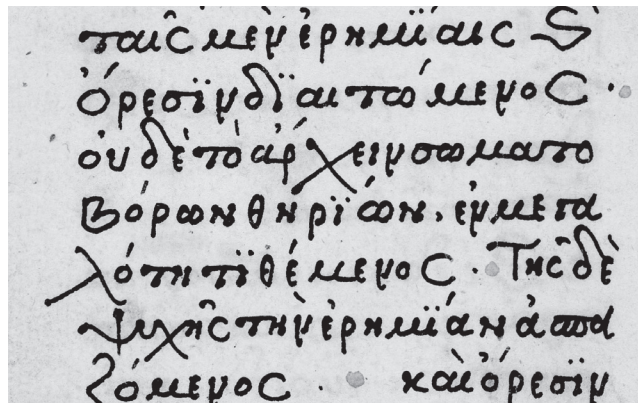 ταῖς μὲν ἐρημΐαις καὶ
ὄρεσϊν δϊαιτώμενος ·
οὐδὲ τὸ ἄρχειν σωματο
βόρων θηρΐων · ἐν μεγα
λότητϊ θέμενος · Τῆς δὲ
ψυχῆς τὴν ἐρημΐαν ἀσπα
ζόμενος · καὶ ὄρεσϊν